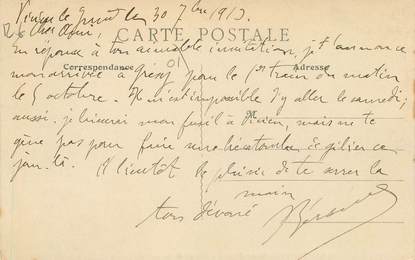 le 30 7bre 1913.
CARTE POSTALE
Cher ami,
En réponse à ton aimable invitation, je t'annonce
Correspondance Adresse
mon arrivée à pour le 1er train du matin
le 5 octobre. Il m'est impossible d'y aller le samedi,
aussi je laisserai mon fusil à mais ne te
gêne pas pour faire une hécatombe de gibier ce
jour-là. A bientôt le plaisir de te serrer la
main
ton dévoué